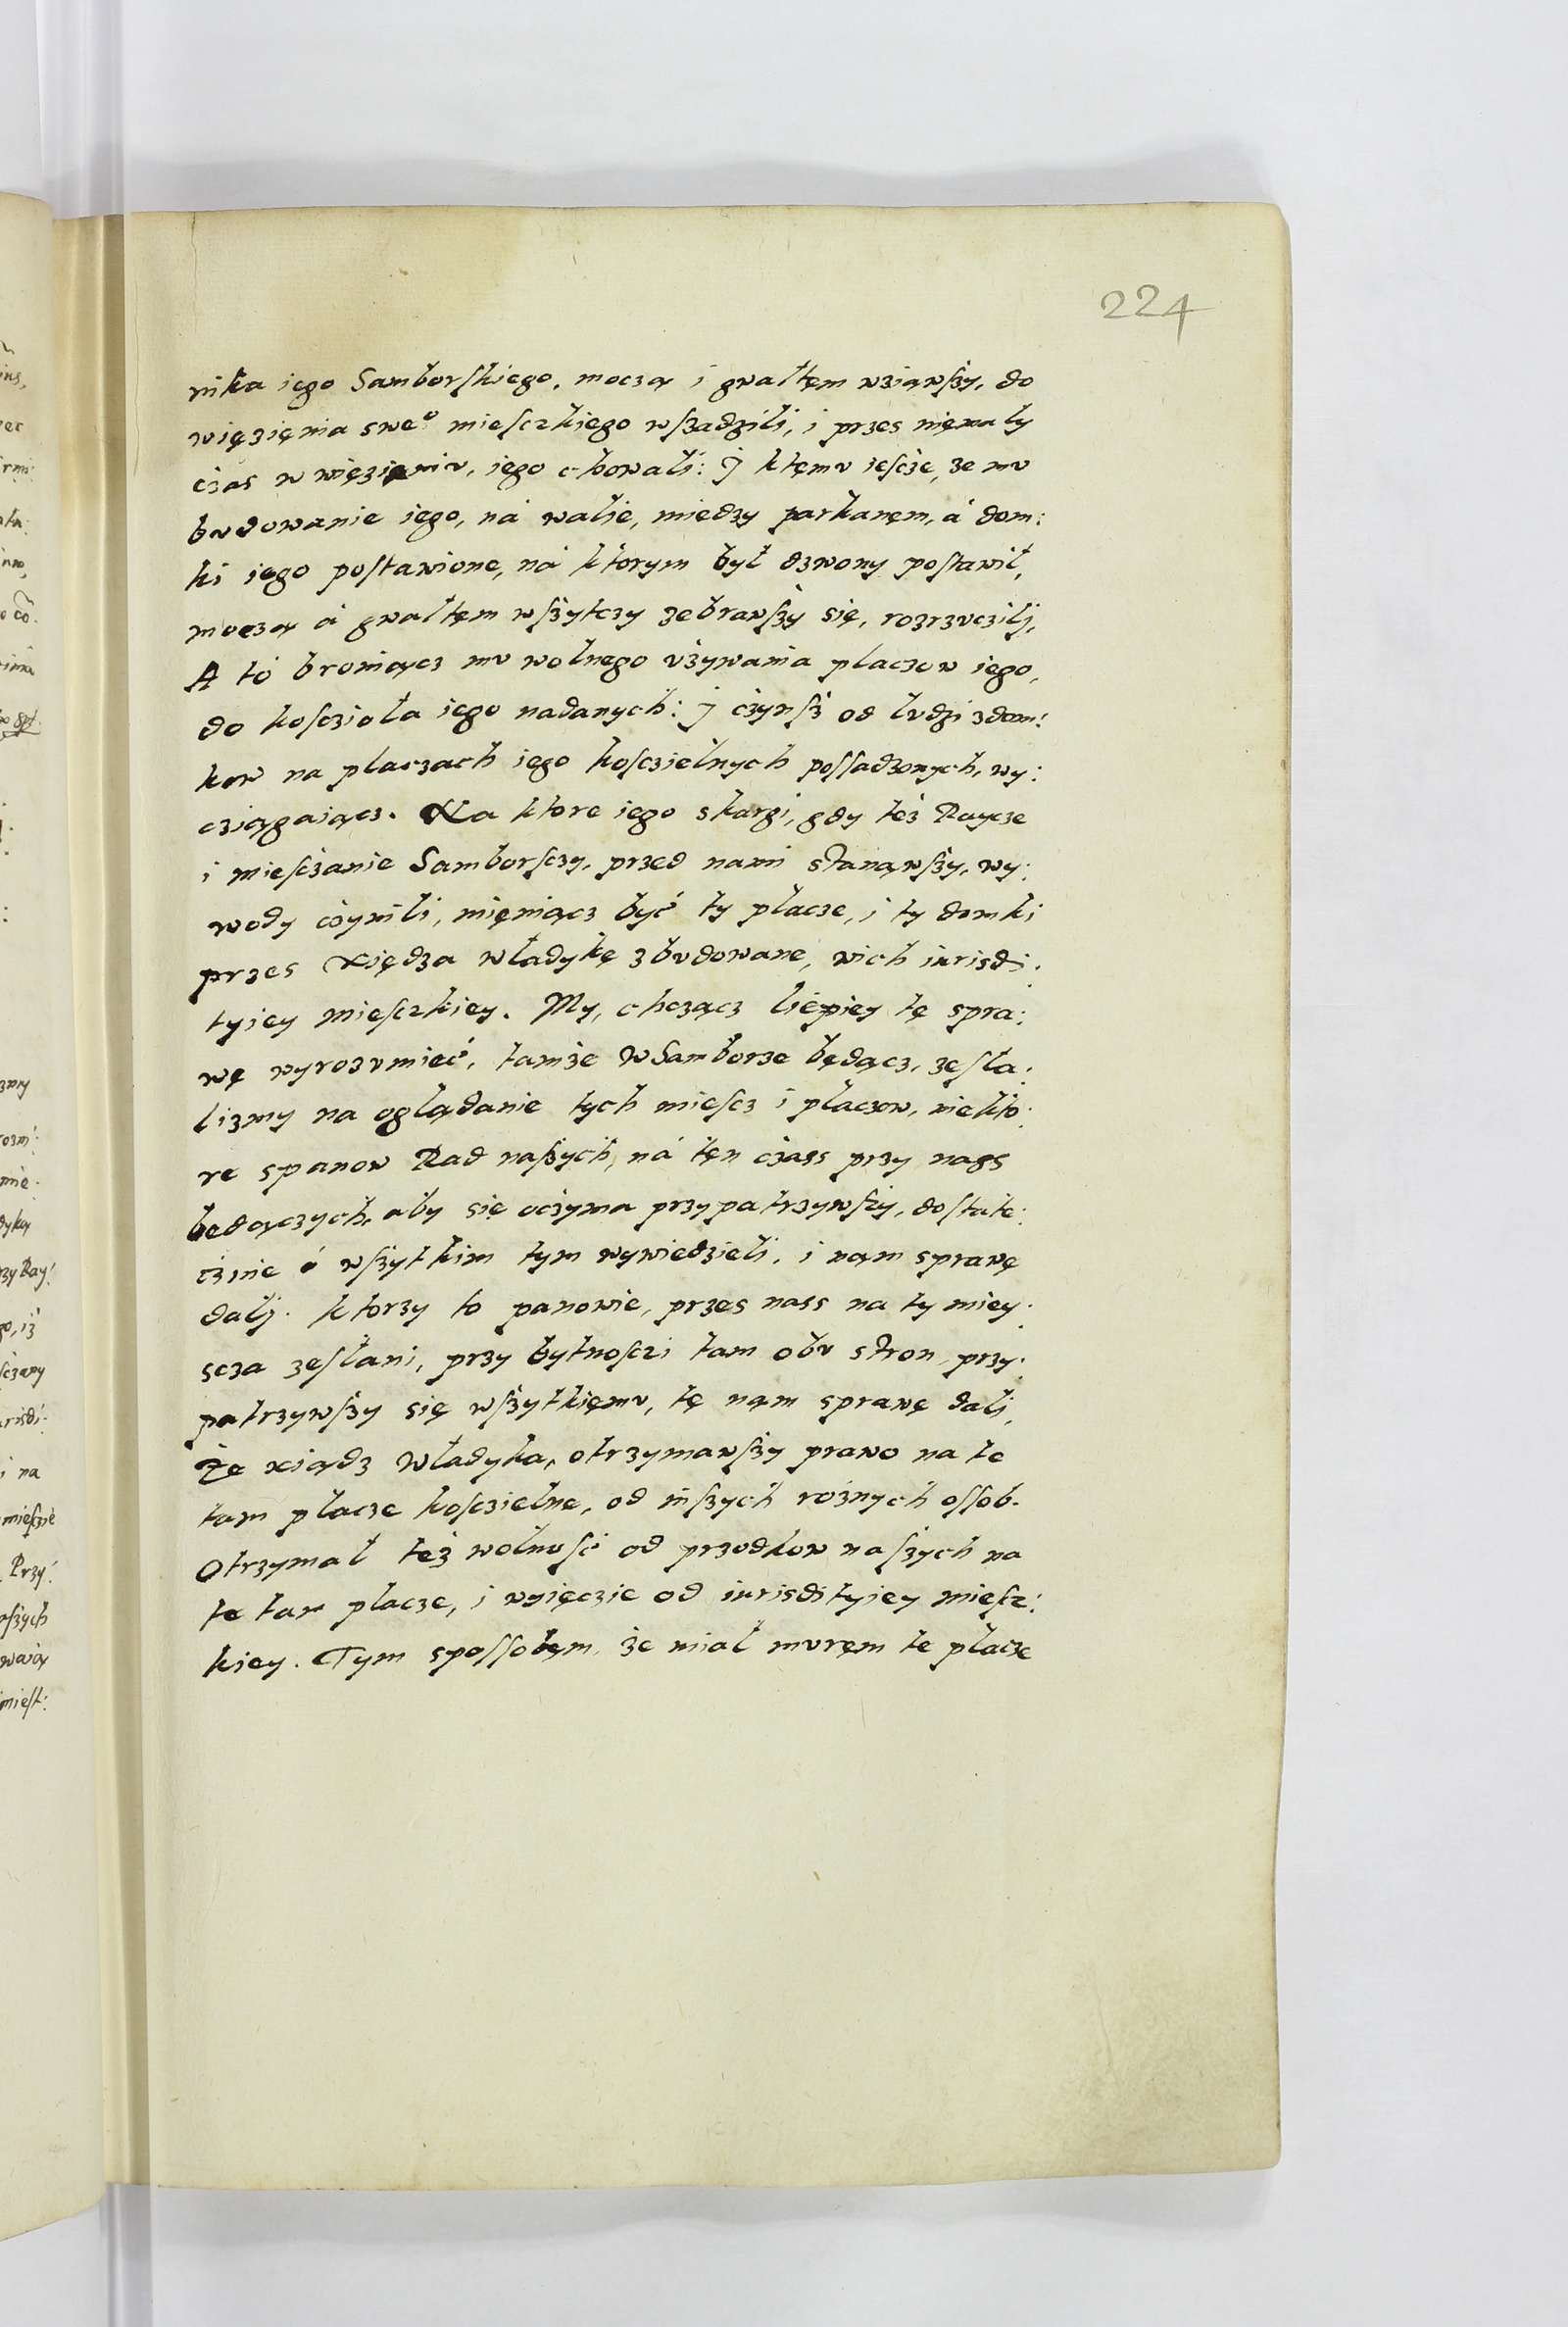 224
nika iego Samborſkiego, moczą i gwałtęm wziąwſzy, do
więzięnia swe° mieſczkiego wſzadzili, i przes niemały
czas w więzieniv, iego chowali: J ktęmv ieſcże, że mv
bvdowanie iego, ná walie, miedzy parkanęm, á dom:
ki iego poſtawione, ná ktorym był dzwony poſtawił,
moczą á gwałtęm wſzytczy zebrawſzy się, rozrzvczilj,
A tó broniącz mv wolnego vżywania placzow iego,
do koſczioła iego nadanych: J czynſz od lvdzi zdom:
kow na placzach iego koſczielnych poſſadzonych, wy:
cziągaiącz. Na ktore iego skargi, gdy też Raycze
i mieſczanie Samborſczy, przed nami stanąwſzy, wy:
wody czynili, mięniącz być ty placze, i ty domki
przes xiędza władykę zbvdowane, wich iurisdi:
tyiey mieſczkiey. My, chcżącz liepiey tę spra:
wę wyrozvmieć, tamże wSamborze będącz, zeſła:
lizmy na oglądanie tych mieſcz i placzow, niekto:
re spanow Rad naſzych, ná tęn czass przy nass
będączych, aby się oczyma przypatrzywſzy, doſtate:
cznie ó wſzytkim tym wywiedzieli, i nąm sprawę
dalj. ktorzy to panowie, przes nass na ty miey:
scza zeſłani, przy bytnoſczi tam obv stron, przy:
patrzywſzy się wſzytkięmv, tę nąm sprawę dalj,
Że xiądz Władyka, otrzymawſzy prawo na te
tam placze koſczielne, od inſzych rożnych oſſob.
Otrzymał też wolnoſć od przodkow naſzych na
te tam placze, i wyięczie od iurisdityiey mieſcz:
kiey. Tym spoſſobęm, że miał mvręm te placze